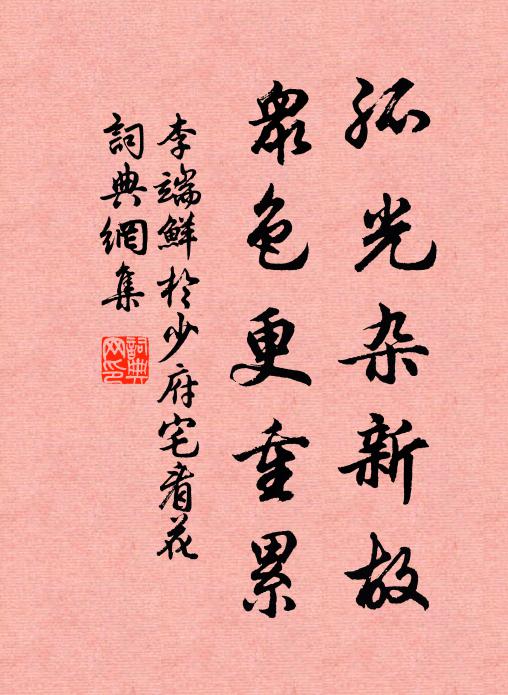 孤光杂新故
衆色更重累
李端鮮於少府宅看花
詞典網集
詞典网印